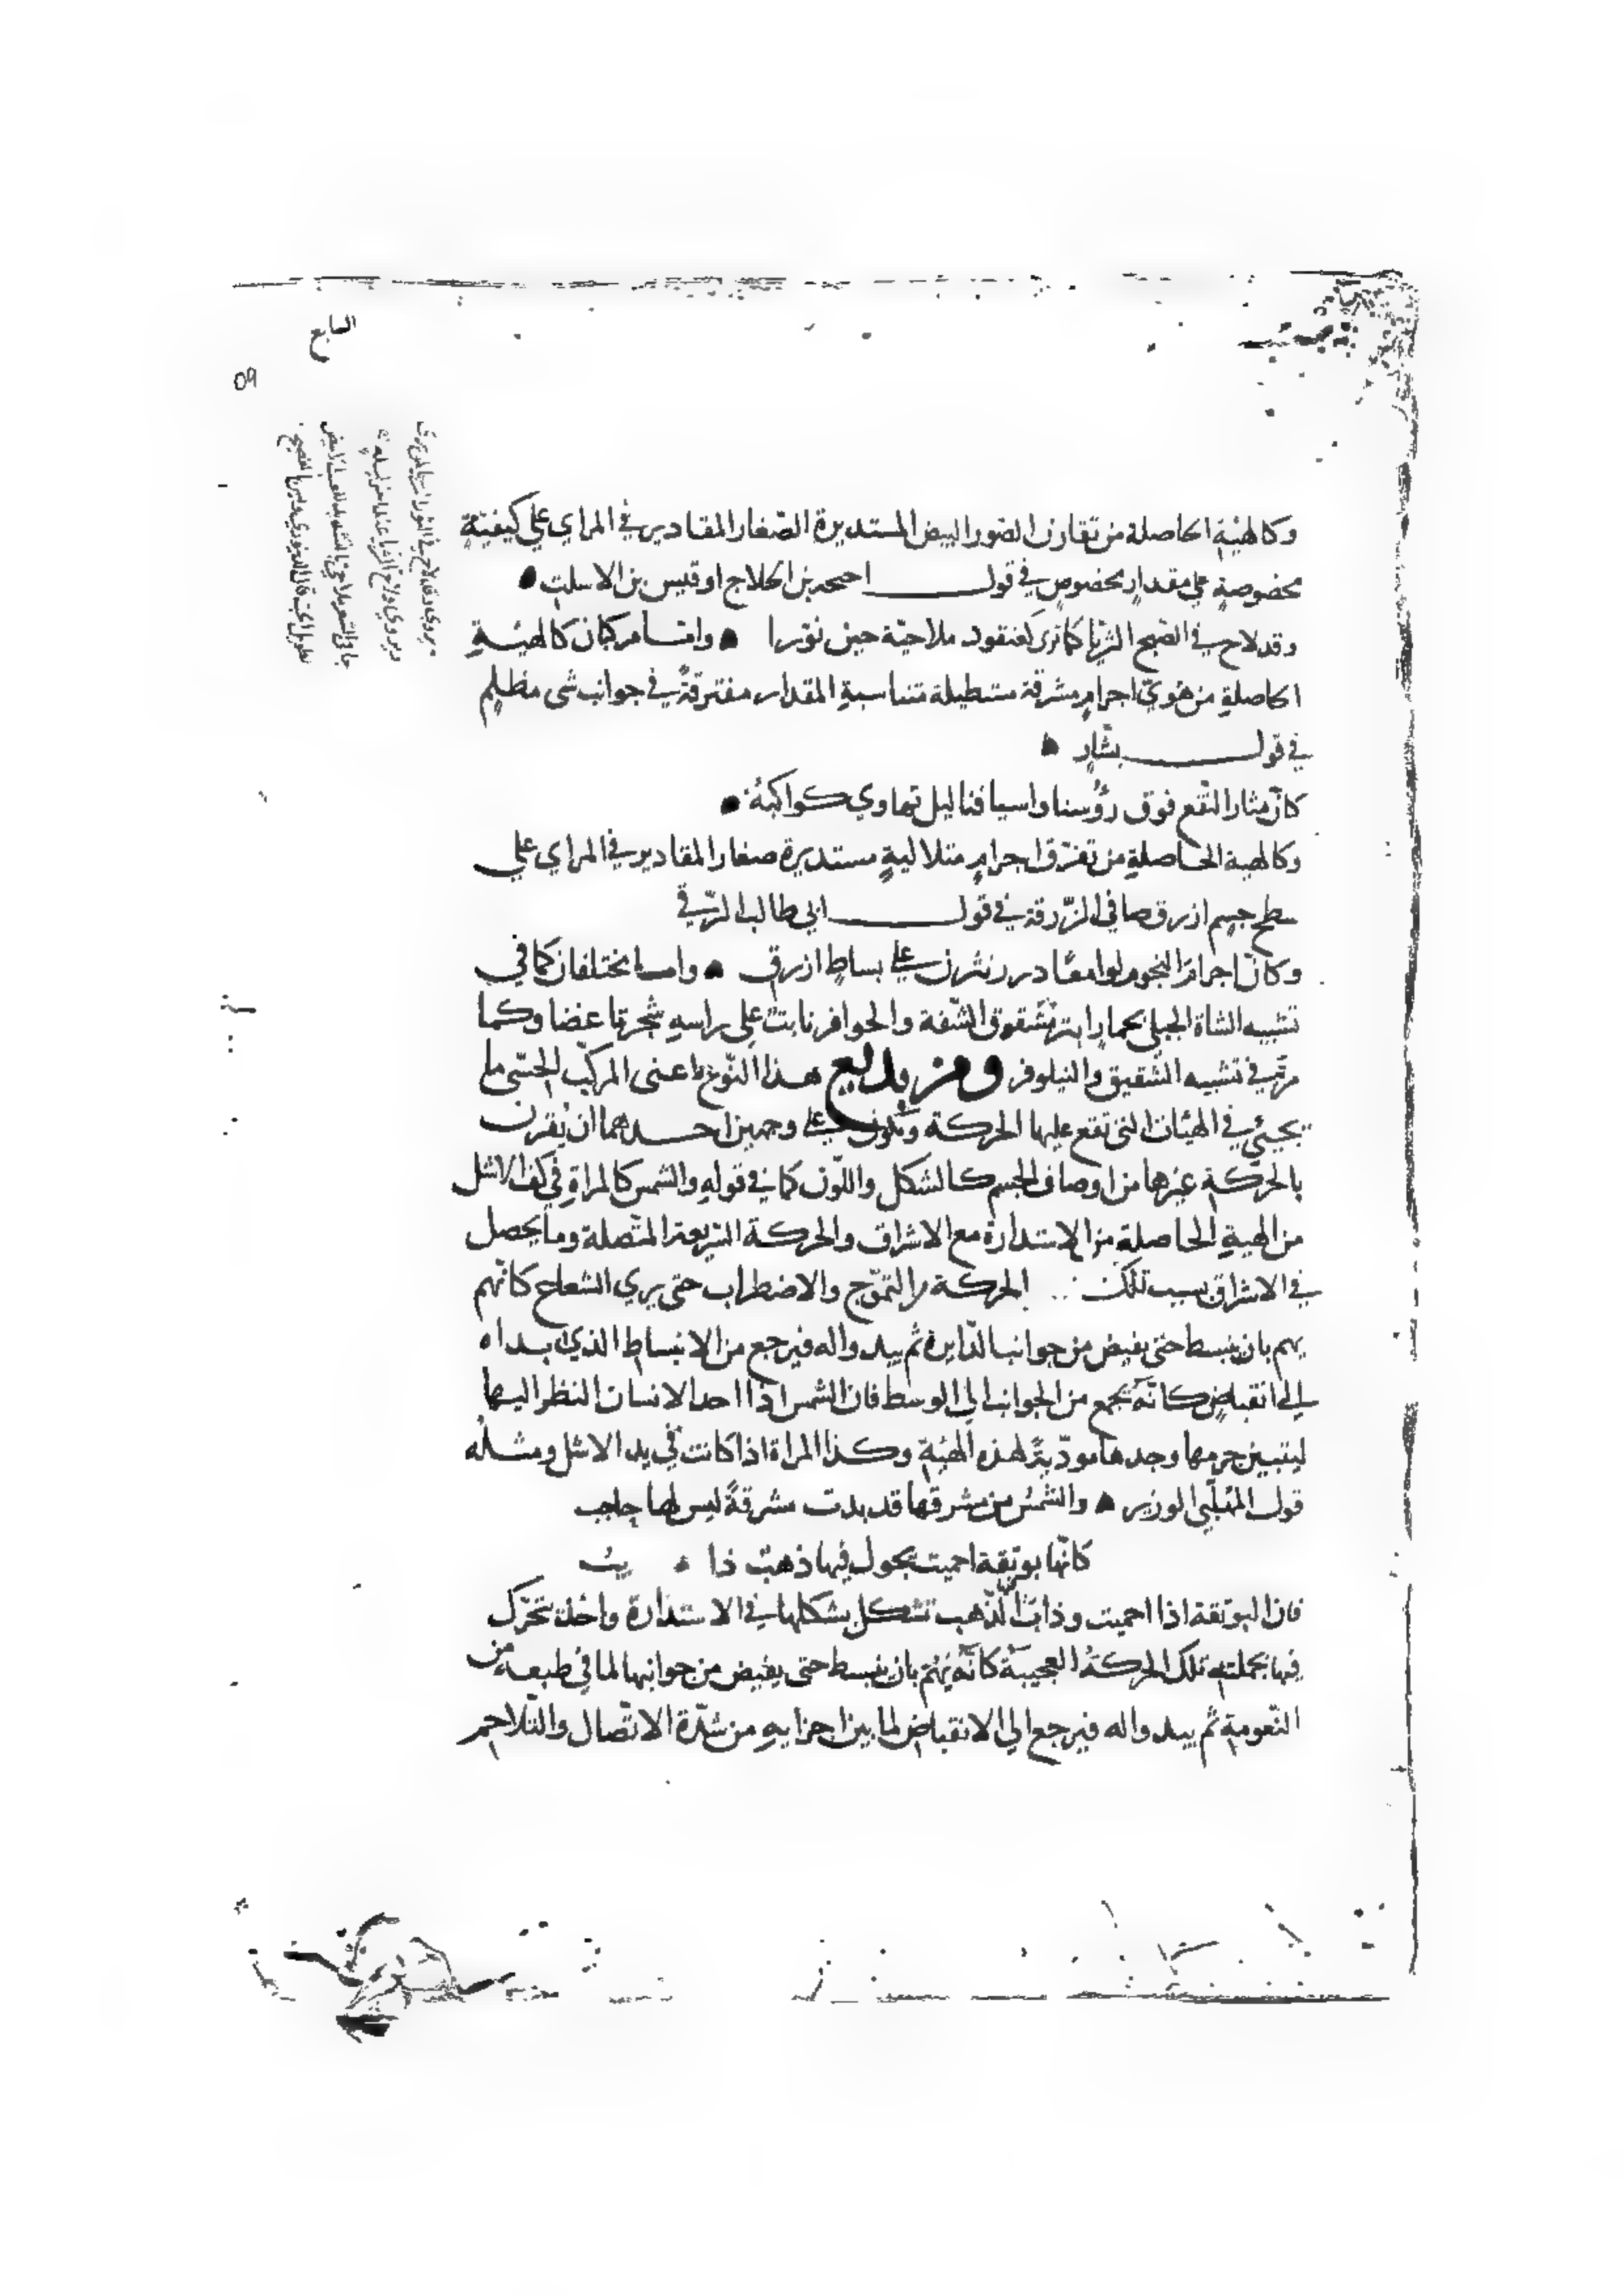 السابع
٥٩
وكالهيئة الحاصلة من تقارن الصور البيض المستديرة الصغار المقادير في المراي علي كيفيّةٍ
مخصوصةٍ علي مقدارٍ مخصوصٍ في قول احيحه بن الحلاج او قيس بن الاسلت
وقد لاح في الصبح الثريا كما تري كعنقود ملاحيّة حين نوّرا وامّا مركبان كالهيئةِ
الحاصلةِ من هُويّ اجرامٍ مشرقة مستطيلة متناسبةِ المقدار مفترقةٍ في جوانب شي مظلمٍ
في قول بشّارٍ
كانّ مثار النقع فوق رؤسنا واسيافنا ليل تهاوي كواكبُهُ
وكالهية الحاصلةِ من تفرّق اجرامٍ متلاليةٍ مستديرة صغار المقادير في المراي علي
سطح جسم ازرق صافي الزّرقة في قول ابي طالب الرّقي
وكانّ اجرامَ النجوم لوامعًا درر نثرن علي بساطٍ ازرق وامـا مختلفان كما في
تشبيه الشاة الجبلي بحمارٍ ابتر مشقوق الشّفة والحوافر نابت علي راسهِ شجرتا غضا وكما
مرّ في تشبيه الشقيق والنيلوفر ومن بديع هذا النّوع اعني المركّب الحسّي ما
يجيئ في الهيئات التي تقع عليها الحركة ويكون علي وجهين احدهما ان يقرن
بالحركةِ غيرها من اوصاف الجسم كالشكل واللّون كما في قولهِ والشمس كالمراةِ في كف الاشل
من الهيةِ الحاصلةِ من الاستدارة مع الاشراق والحركة السّريعة المتّصلة وما يحصل
في الاشراق بسبب تلك الحركة من التموّج والاضطراب حتي يري الشعاع كانّهم
يهم بان ينبسط حتي يفيض من جوانب الدّايرة ثم يبدوا له فيرجع من الانبساط الذي بداه
الي انقباضٍ كانّه يجمع من الجوانب الي الوسط فان الشمس اذا احد الانسان النظر اليها
ليتبين جرمها وجدها مودّيةً لهذه الهئيةِ وكذا المراة اذا كانت في يد الاشل ومثله
قول المهلّبي الوزير والشّمسُ من مشرقها قد بدت مشرقةً ليس لها حاجب
كانّها بوتقة احميت يجول فيها ذهبٌ ذايبُ
فان البوتقة اذا احميت وذاب الذّهب تشكل بشكلها في الاستدارة واخذ يتحرّك
فيها بجملته تلك الحركةَ العجيبةَ كانّه يَهُمّ بان ينبسط حتي يفيض من جوانبها لما في طبعه من
النّعومةِ ثم يبدوا له فيرجع الي الانقباض لما بين اجزايهِ من شدّة الاتّصال والتّلاحم